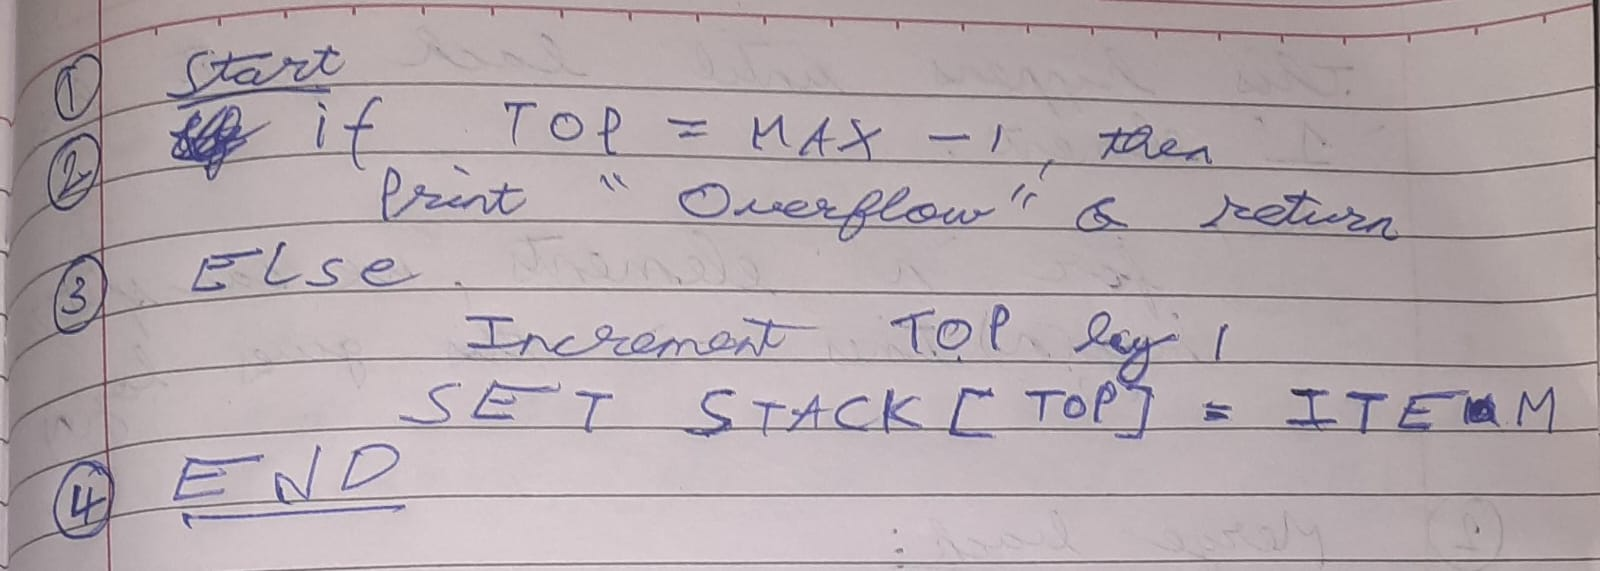 ① Start
② if TOP = MAX - 1, then
Print " Overflow " & return
③ ELse
Increment TOP by 1
SET STACK [ TOP ] = ITEM
④ END